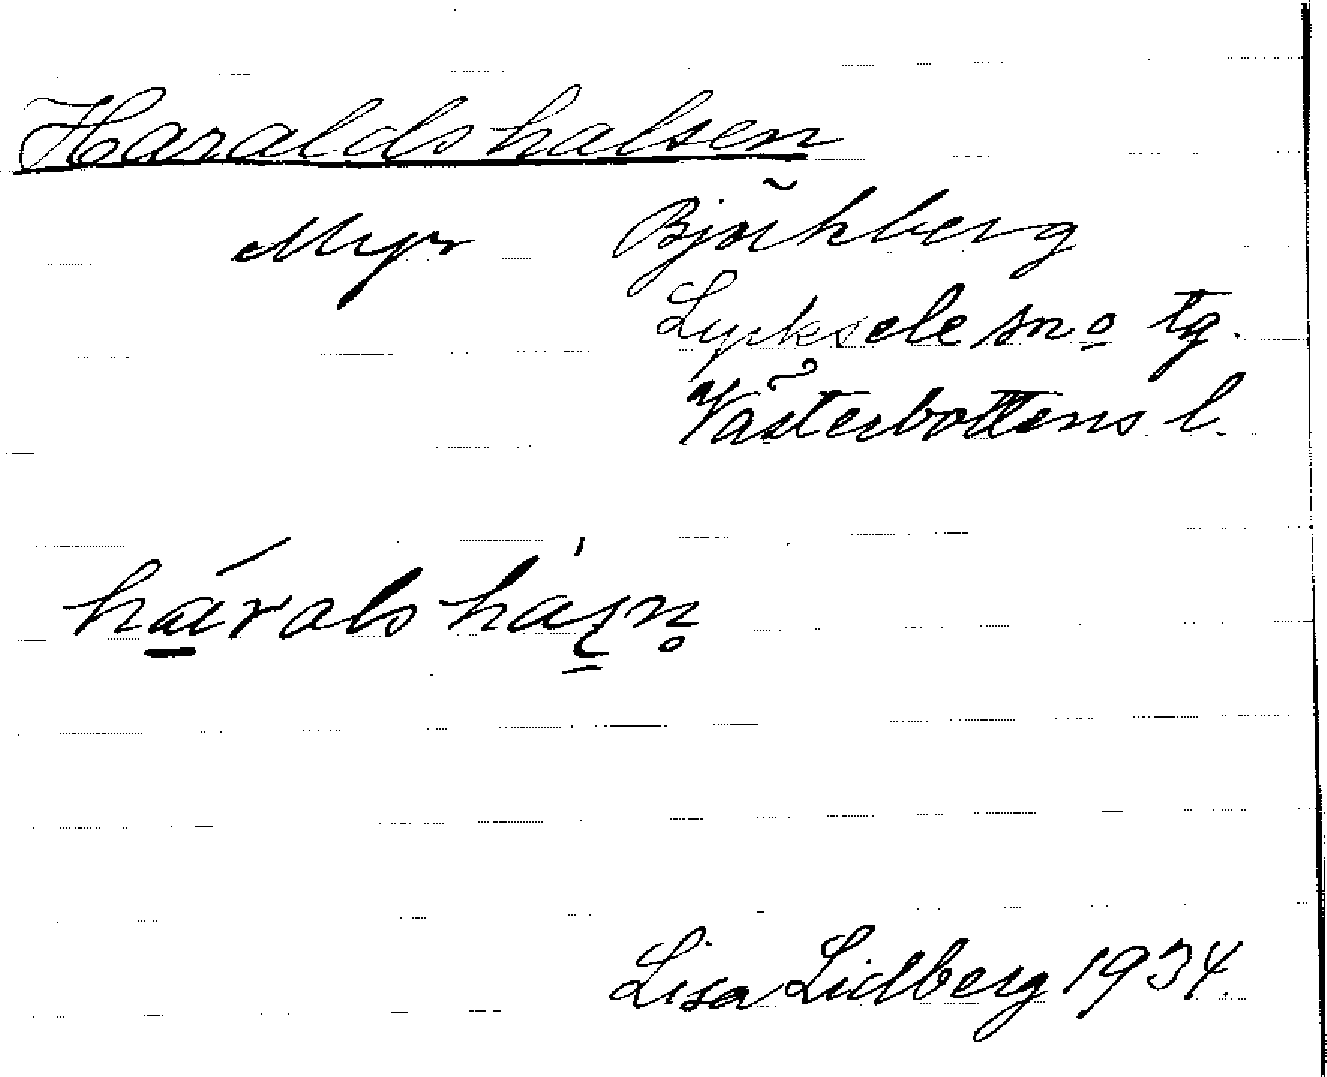 Haraldshalsen
Myr Björkberg
Lycksele sn o tg.
Västerbottens l.
háralshásn̥
Lisa Lidberg 1934.